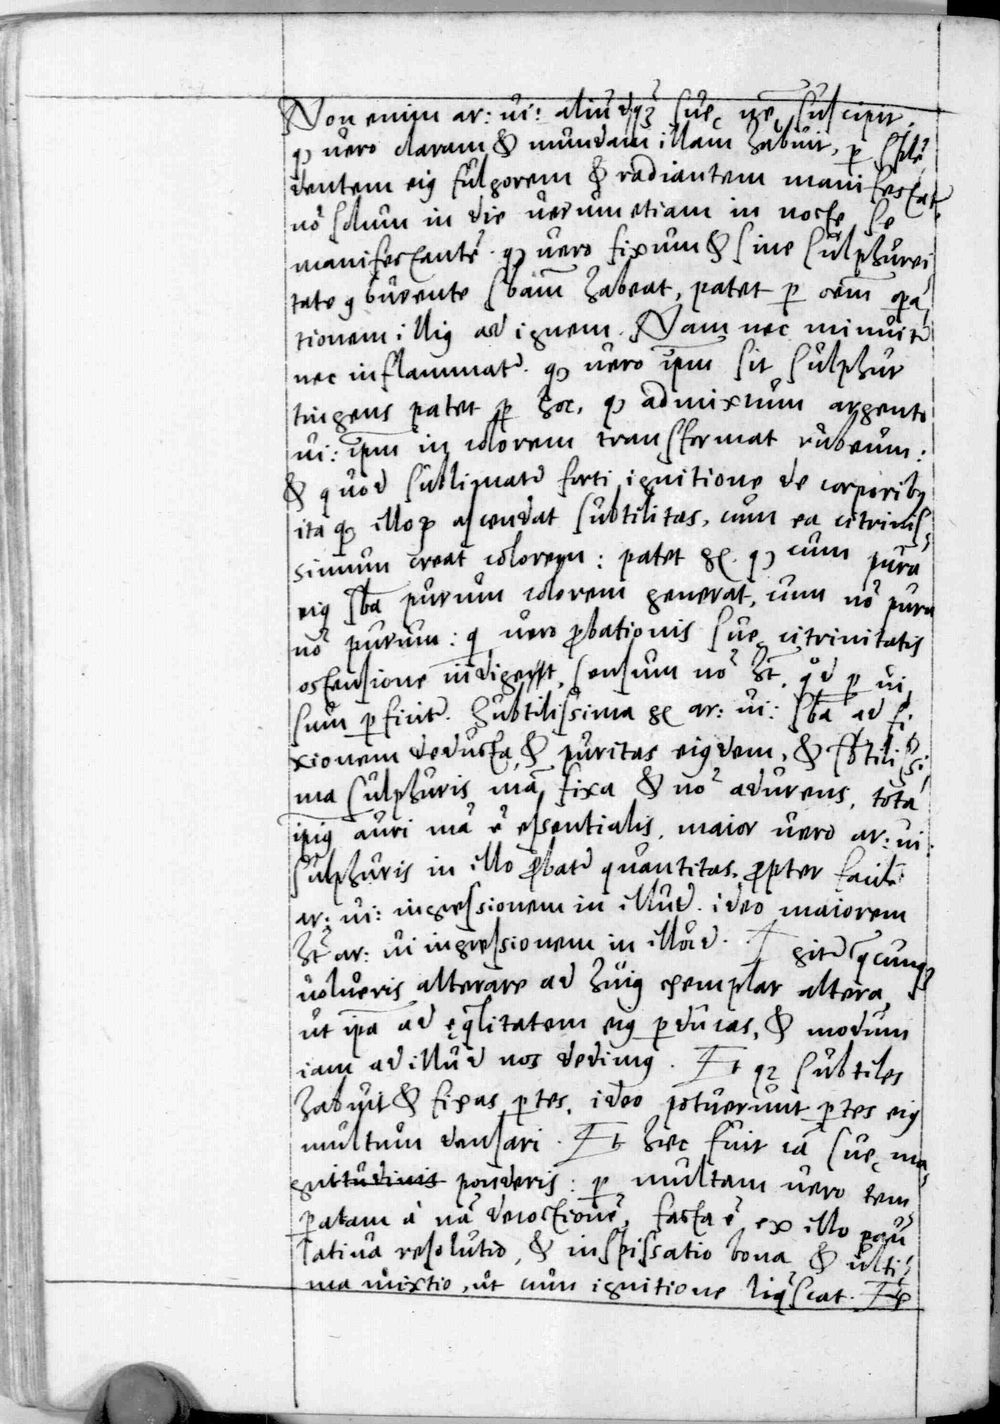 Non enim ar: ui: aliud q̃ suę nr̃ę suscipit.
ꝙ uero claram & mundam illam habuit, ꝑ splē
dentem eiꝰ fulgorem & radiantem manifestatr̃
nō solum in die uerumetiam in nocte se
manifestantē. ꝙ uero fixum & sine sulphurei
tate ꝯburente sbãm habeat, patet ꝑ oem̃ opa
tionem illiꝰ ad ignem. Nam nec minuitr̃
nec inflammatr̃. ꝙ uero ip̃m sit sulphur
tingens patet ꝑ hoc, ꝙ admixtum argento
ui: ip̃m in colorem transformat rubeum:
& quod sublimatr̃ forti ignitione de corporibꝰ
ita ꝙ illoꝝ ascendat subtilitas, cum ea citrinis
simum creat colorem: patet ꝙ cum pura
eiꝰ sba purum colorem generat, cum nō pura
nō purum: qꝫ uero ꝓbationis suę citrinitatis
ostensione indiget, sensum nō ht̃, qd̃ ꝑ ui
sum ꝑficitr̃. Subtilissima ar: ui: sba ad fi
xionem deducta, & puritas eiꝰdem, & sbtilissi
ma sulphuris mã fixa & nō adurens, tota
ip̃iꝰ auri mã ē essentialis. maior uero ar: ui
sulphuris in illo ꝓbatr̃ quantitas, ꝓpter facilē
ar: ui: ingressionem in illud. ideo maiorem
ht̃ ar: ui ingressionem in illud. Igitr̃ qcunqꝫ
uolueris alterare ad huiꝰ exemplar altera,
ut ip̃a ad ęqlitatem eiꝰ ꝑducas, & modum
iam ad illud nos dedimꝰ. Et qꝫ subtiles
habuit & fixas ꝑtes, ideo potuerunt ꝑtes eiꝰ
multum densari. Et hęc fuit cã suę ma
gnitudinis ponderis: ꝑ multam uero tem
ꝑatam a nã decoctionē, facta ē ex illo pau
latiua resolutio, & inspissatio bona & ulti
ma mixtio, ut cum ignitione liqscat. Ex